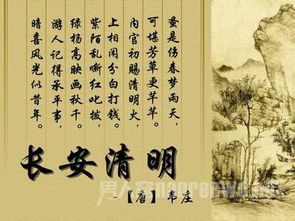 蚤是伤春梦雨天，
可堪芳草更芊芊。
内官初赐清明火，
上相闲分白打钱。
紫陌乱嘶红叱拨，
绿杨高映画秋千。
游人记得承平事，
暗喜风光似昔年。
长安清明
-【唐】韦庄